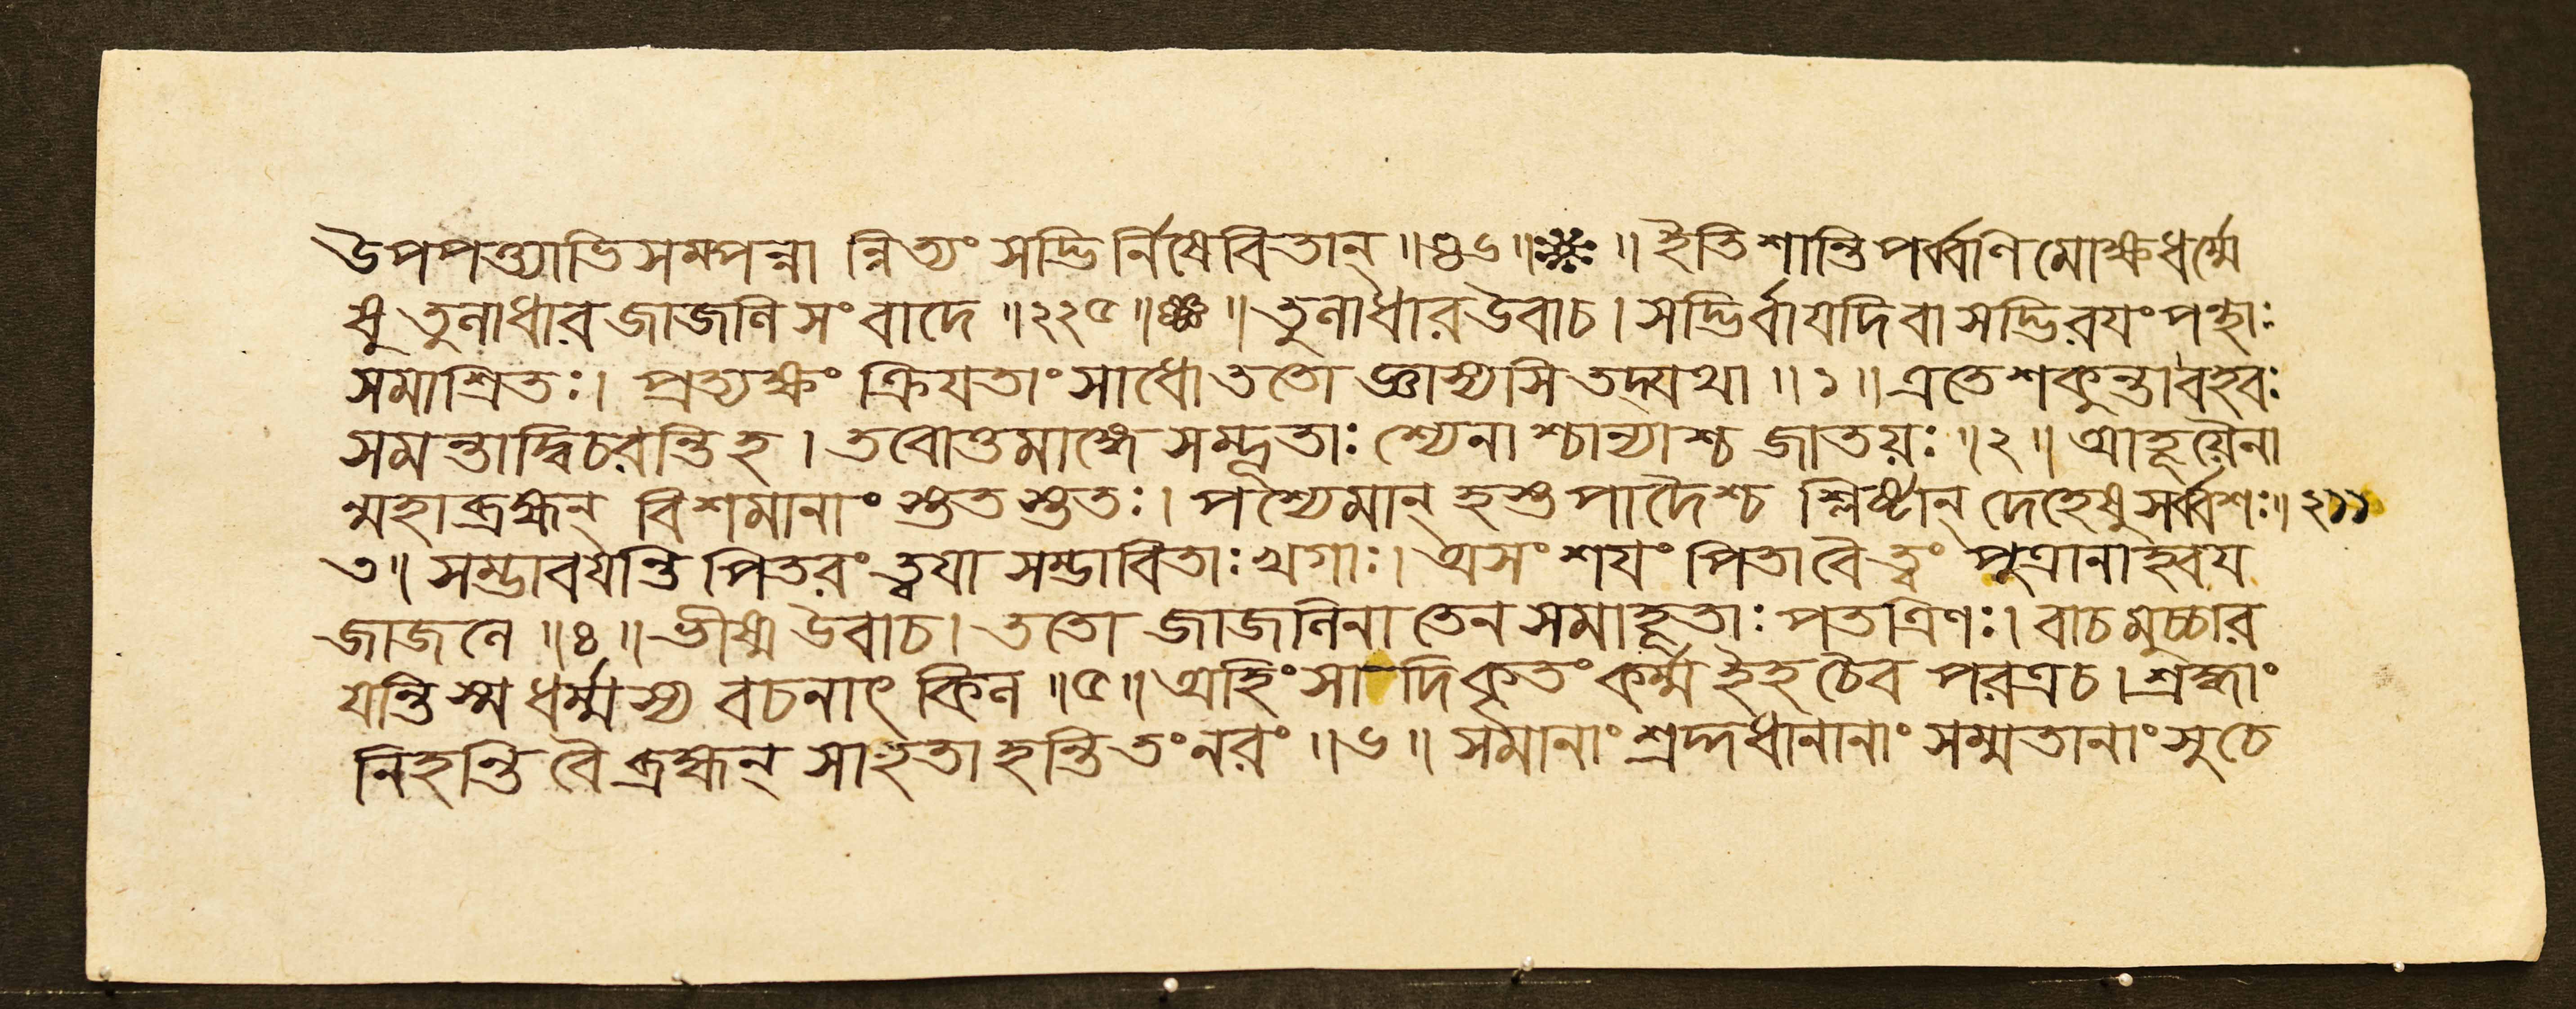 উপপত্ত্যাভিসম্পন্না ন্নিত্যং সদ্ভির্নিষেবিতান্ ॥ ৪৬ ॥ ❈ ॥ ইতি শান্তিপর্ব্বণি মোক্ষধর্ম্মে
ষু তুলাধার জাজলি সংবাদে ॥ ২২৫ ॥ ❈ ॥ তুলাধার উবাচ । সদ্ভির্বা যদি বা সদ্ভিরয়ং পন্থাঃ
সমাশ্রিতঃ । প্রত্যক্ষং ক্রিয়তাং সাধো ততো জ্ঞাস্যসি তদ্যথা ॥ ১ ॥ এতে শকুন্তা বহবঃ
সমন্তাদ্বিচরন্তি হ । তবোত্তমাঙ্গে সম্ভূতাঃ শ্যেনাশ্চান্যাশ্চ জাতয়ঃ ॥ ২ ॥ আহূয়ৈনা
ন্মহাব্রহ্মন্ বিশমানাং স্ততস্ততঃ । পশ্যেমান্ হস্তপাদৈশ্চ শ্লিষ্টান্ দেহেষু সর্ব্বশঃ ॥ ২১১
৩ ॥ সম্ভাবয়ন্তি পিতরং ত্বয়া সম্ভাবিতাঃ খগাঃ । অসংশয়ং পিতা বৈ ত্বং পুত্রানাহ্বয়
জাজলে ॥ ৪ ॥ ভীষ্ম উবাচ । ততো জাজলিনা তেন সমাহূতাঃ পতত্রিণঃ । বাচমুচ্চার
যন্তি স্ম ধর্ম্মস্য বচনাৎ কিল ॥ ৫ ॥ অহিংসাদিকৃতং কর্ম্ম ইহ চৈব পরত্র চ । শ্রদ্ধাং
নিহন্তি বৈ ব্রহ্মন্ সা হতা হন্তি তং নরং ॥ ৬ ॥ সমানাং শ্রদ্দধানানাং সম্মতানাং সুচে